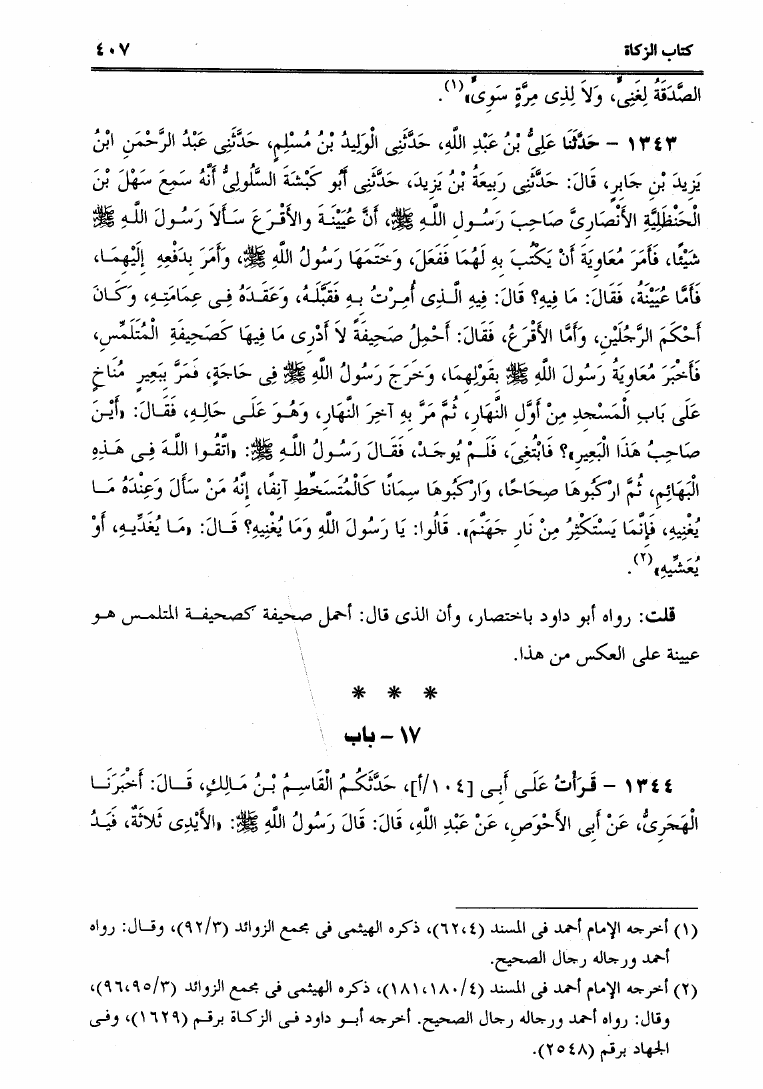 كتاب الزكاة ٤٠٧
الصَّدَقَةُ لِغَنِىٍّ، وَلاَ لِذِى مِرَّةٍ سَوِىٍّ»(١).
١٣٤٣ – حَدَّثَنَا عَلِىُّ بْنُ عَبْدِ اللَّهِ، حَدَّثَنِى الْوَلِيدُ بْنُ مُسْلِمٍ، حَدَّثَنِى عَبْدُ الرَّحْمَنِ ابْنُ
يَزِيدَ بْنِ جَابِرٍ، قَالَ: حَدَّثَنِى رَبِيعَةُ بْنُ يَزِيدَ، حَدَّثَنِى أَبُو كَبْشَةَ السَّلُولِىُّ أَنَّهُ سَمِعَ سَهْلَ بْنَ
الْحَنْظَلِيَّةِ الأَنْصَارِىَّ صَاحِبَ رَسُولِ اللَّهِ ﷺ، أَنَّ عُيَيْنَةَ وَالأَقْرَعَ سَأَلاَ رَسُولَ اللَّهِ ﷺ
شَيْئًا، فَأَمَرَ مُعَاوِيَةَ أَنْ يَكْتُبَ بِهِ لَهُمَا فَفَعَلَ، وَخَتَمَهَا رَسُولُ اللَّهِ ﷺ، وَأَمَرَ بِدَفْعِهِ إِلَيْهِمَا،
فَأَمَّا عُيَيْنَةُ، فَقَالَ: مَا فِيهِ؟ قَالَ: فِيهِ الَّذِى أُمِرْتُ بِهِ فَقَبَّلَهُ، وَعَقَدَهُ فِى عِمَامَتِهِ، وَكَانَ
أَحْكَمَ الرَّجُلَيْنِ، وَأَمَّا الأَقْرَعُ، فَقَالَ: أَحْمِلُ صَحِيفَةً لاَ أَدْرِى مَا فِيهَا كَصَحِيفَةِ الْمُتَلَمِّسِ،
فَأَخْبَرَ مُعَاوِيَةُ رَسُولَ اللَّهِ ﷺ بِقَوْلِهِمَا، وَخَرَجَ رَسُولُ اللَّهِ ﷺ فِى حَاجَةٍ، فَمَرَّ بِبَعِيرٍ مُنَاخٍ
عَلَى بَابِ الْمَسْجِدِ مِنْ أَوَّلِ النَّهَارِ، ثُمَّ مَرَّ بِهِ آخِرَ النَّهَارِ، وَهُوَ عَلَى حَالِهِ، فَقَالَ: «أَيْنَ
صَاحِبُ هَذَا الْبَعِيرِ»؟ فَابْتُغِىَ، فَلَمْ يُوجَدْ، فَقَالَ رَسُولُ اللَّهِ ﷺ: «اتَّقُوا اللَّهَ فِى هَذِهِ
الْبَهَائِمِ، ثُمَّ ارْكَبُوهَا صِحَاحًا، وَارْكَبُوهَا سِمَانًا كَالْمُتَسَخِّطِ آنِفًا، إِنَّهُ مَنْ سَأَلَ وَعِنْدَهُ مَا
يُغْنِيهِ، فَإِنَّمَا يَسْتَكْثِرُ مِنْ نَارِ جَهَنَّمَ». قَالُوا: يَا رَسُولَ اللَّهِ وَمَا يُغْنِيهِ؟ قَالَ: «مَا يُغَدِّيهِ، أَوْ
يُعَشِّيهِ»(٢).
قلت: رواه أبو داود باختصار، وأن الذى قال: أحمل صحيفة كصحيفة المتلمس هو
عيينة على العكس من هذا.
* * *
١٧ – باب
١٣٤٤ – قَرَأْتُ عَلَى أَبِى [١٠٤/أ]، حَدَّثَكُمُ الْقَاسِمُ بْنُ مَالِكٍ، قَالَ: أَخْبَرَنَا
الْهَجَرِىُّ، عَنْ أَبِى الأَحْوَصِ، عَنْ عَبْدِ اللَّهِ، قَالَ: قَالَ رَسُولُ اللَّهِ ﷺ: «الأَيْدِى ثَلاثَةٌ، فَيَدُ
(١) أخرجه الإمام أحمد فى المسند (٦٢،٤)، ذكره الهيثمى فى مجمع الزوائد (٩٢/٣)، وقال: رواه
أحمد ورجاله رجال الصحيح.
(٢) أخرجه الإمام أحمد فى المسند (١٨١،١٨٠/٤)، ذكره الهيثمى فى مجمع الزوائد (٩٦،٩٥/٣)،
وقال: رواه أحمد ورجاله رجال الصحيح. أخرجه أبو داود فى الزكاة برقم (١٦٢٩)، وفى
الجهاد برقم (٢٥٤٨).